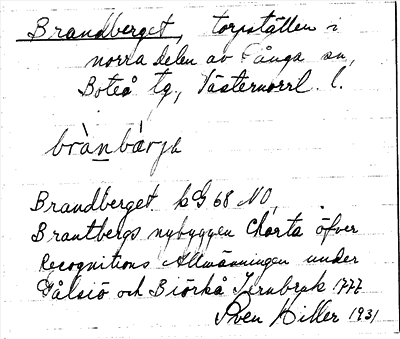 Brandberget, torpställen i
norra delen av Långa sn,
Boteå tg., Västernorrl. l.
brànbárjh
Brandberget. kG 68 NO.
Brantbergs nybyggen Charta öfver
Recognitions Allmänningen under
Gålsiö och Biörkå Jernbruk 1777
Sven Hiller 1931